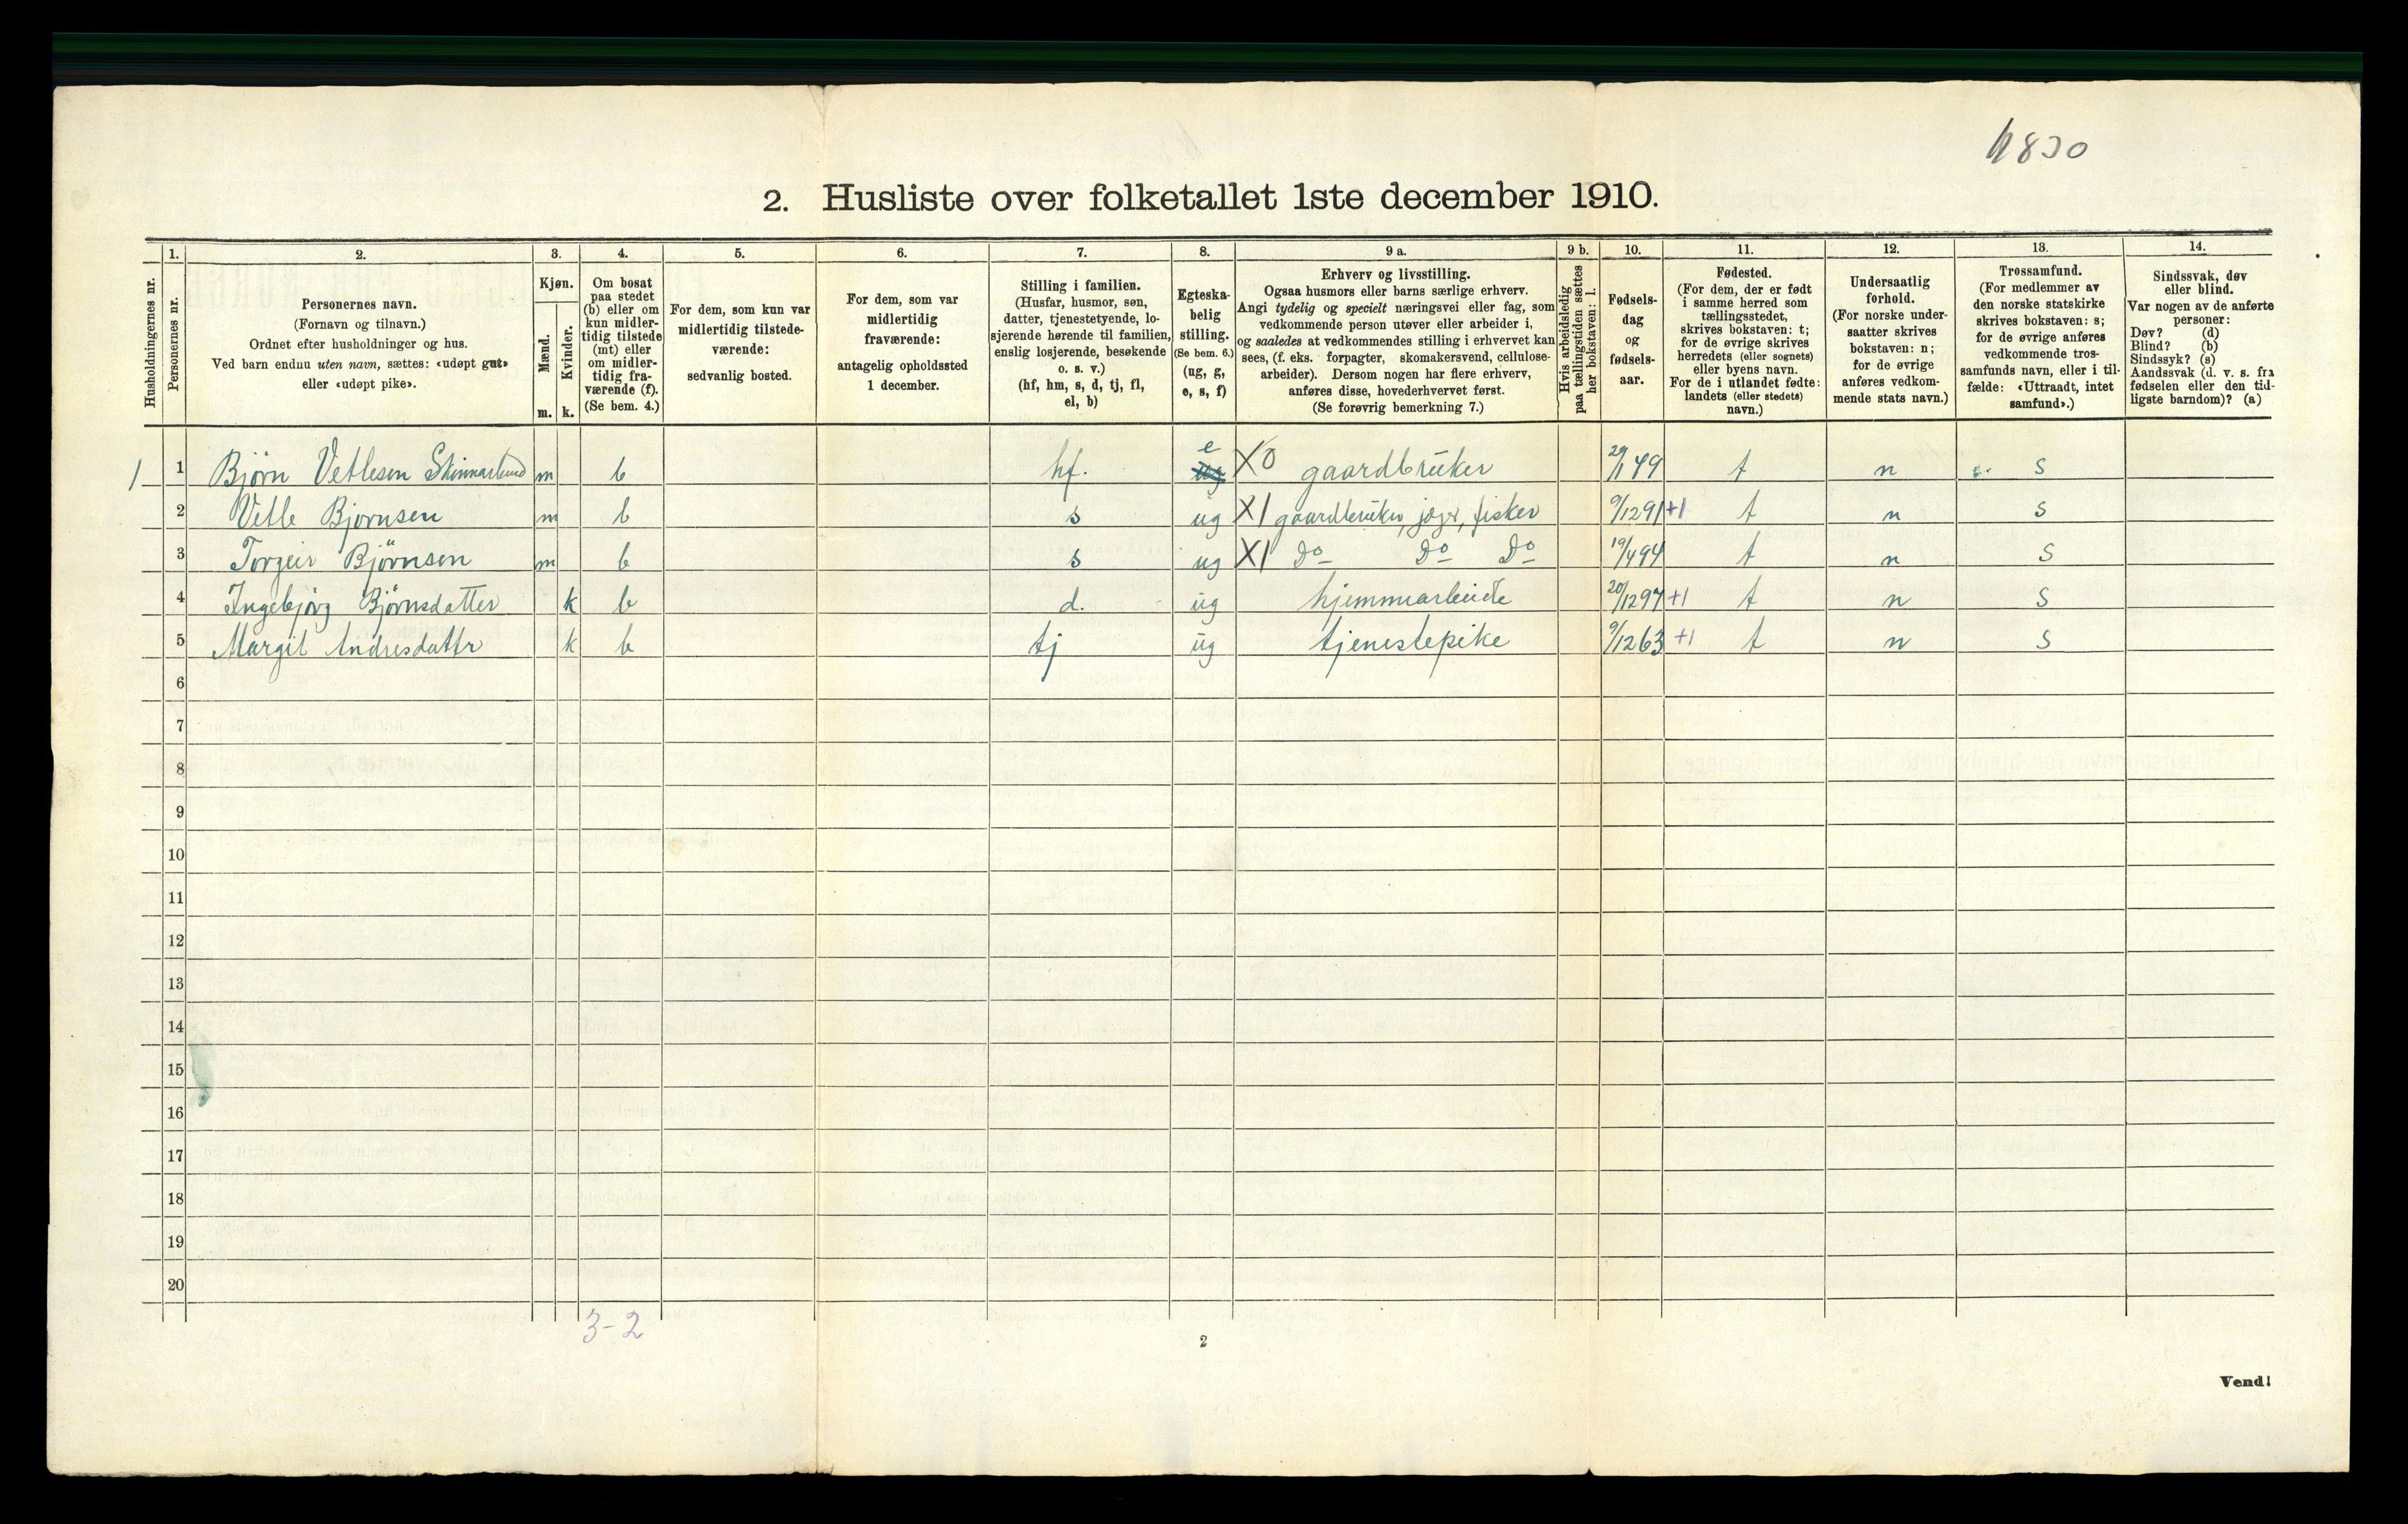 1830
2. Husliste over folketallet 1ste december 1910.
Husholdningernes nr.
1. Personernes nr.
2. Personernes navn. (Fornavn og tilnavn.) Ordnet efter husholdninger og hus. Ved barn endnu uten navn, sættes: «udøpt gut» eller «udøpt pike».
3. Kjøn. Mænd. m. Kvinder. k.
4. Om bosat paa stedet (b) eller om kun midlertidig tilstede (mt) eller om midlertidig fraværende (f). (Se bem. 4.)
5. For dem, som kun var midlertidig tilstedeværende: sedvanlig bosted.
6. For dem, som var midlertidig fraværende: antagelig opholdssted 1 december.
7. Stilling i familien. (Husfar, husmor, søn, datter, tjenestetyende, losjerende hørende til familien, enslig losjerende, besøkende o. s. v.) (hf, hm, s, d, tj, fl, el, b)
8. Egteskabelig stilling. (Se bem. 6.) (ug, g, e, s, f)
9 a. Erhverv og livsstilling. Ogsaa husmors eller barns særlige erhverv. Angi tydelig og specielt næringsvei eller fag, som vedkommende person utøver eller arbeider i, og saaledes at vedkommendes stilling i erhvervet kan sees, (f. eks. forpagter, skomakersvend, cellulosearbeider). Dersom nogen har flere erhverv, anføres disse, hovederhvervet først. (Se forøvrig bemerkning 7.)
9 b. Hvis arbeidsledig paa tællingstiden sættes her bokstaven: l.
10. Fødselsdag og fødselsaar.
11. Fødested. (For dem, der er født i samme herred som tællingsstedet, skrives bokstaven: t; for de øvrige skrives herredets (eller sognets) eller byens navn. For de i utlandet fødte: landets (eller stedets) navn.)
12. Undersaatlig forhold. (For norske undersaatter skrives bokstaven: n; for de øvrige anføres vedkommende stats navn.)
13. Trossamfund. (For medlemmer av den norske statskirke skrives bokstaven: s; for de øvrige anføres vedkommende trossamfunds navn, eller i tilfælde: «Uttraadt, intet samfund».)
14. Sindssvak, døv eller blind. Var nogen av de anførte personer: Døv? (d) Blind? (b) Sindssyk? (s) Aandssvak (d. v. s. fra fødselen eller den tidligste barndom)? (a)
1 1 Bjørn Vetlesen Skinnarland m b hf. e ug X0 gaardbruker 29/1 49 t n s
2 Vetle Bjørnsen m b s ug X1 gaardbruker, jæger, fisker 9/12 91 +1 t n s
3 Torgeir Bjørnsen m b s ug X1 Do Do Do 19/4 94 t n s
4 Ingebjørg Björnsdatter k b d. ug hjemmearbeide 20/12 97 +1 t n s
5 Margit Andresdattr k b tj ug tjenestepike 9/12 63 +1 t n s
6
7
8
9
10
11
12
13
14
15
16
17
18
19
20
3-2
2
Vend!